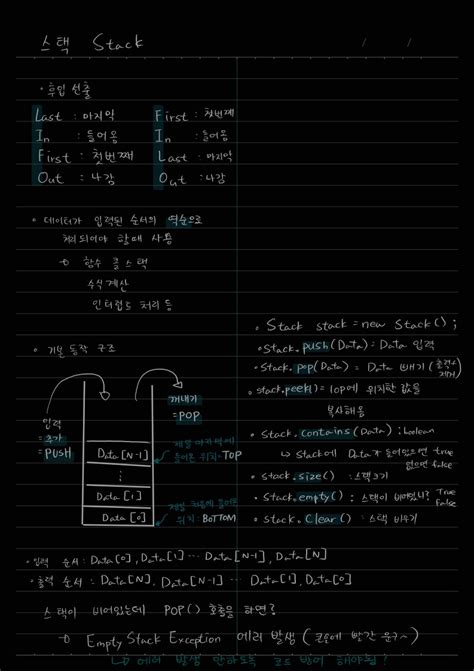 스택 Stack
/ /
• 후입 선출
Last : 마지막 First : 첫번째
In : 들어옴 In : 들어옴
First : 첫번째 Last : 마지막
Out : 나감 Out : 나감
• 데이터가 입력된 순서의 역순으로
처리되어야 할때 사용
→ 함수 콜 스택
수식계산
인터럽트 처리 등
• 기본 동작 구조
입력
=추가
=PUSH
꺼내기
=POP
Data[N-1]
⋮
Data[1]
Data[0]
제일 마지막에
들어온 위치-TOP
제일 처음에 들어온
위치: BOTTOM
• Stack stack = new Stack();
• Stack.push(Data): Data 입력
• Stack.pop(Data) = Data 빼기 (출력&
제거)
• stack.peek() = top에 위치한 값을
복사해옴
• Stack.contains(Data): boolean
↳ stack에 Data가 들어있으면 true
없으면 false
• Stack.size() : 스택크기
• Stack.empty() : 스택이 비어있니? True
False
• Stack.Clear() : 스택 비우기
• 입력 순서 : Data[0], Data[1] ... Data[N-1], Data[N]
• 출력 순서 : Data[N], Data[N-1] ... Data[1], Data[0]
스택이 비어있는데 POP() 호출을 하면?
→ Empty Stack Exception 에러 발생 (콘솔에 빨간 문구~)
↳ 에러 발생 안하도록 코드 짜야 해야됨!